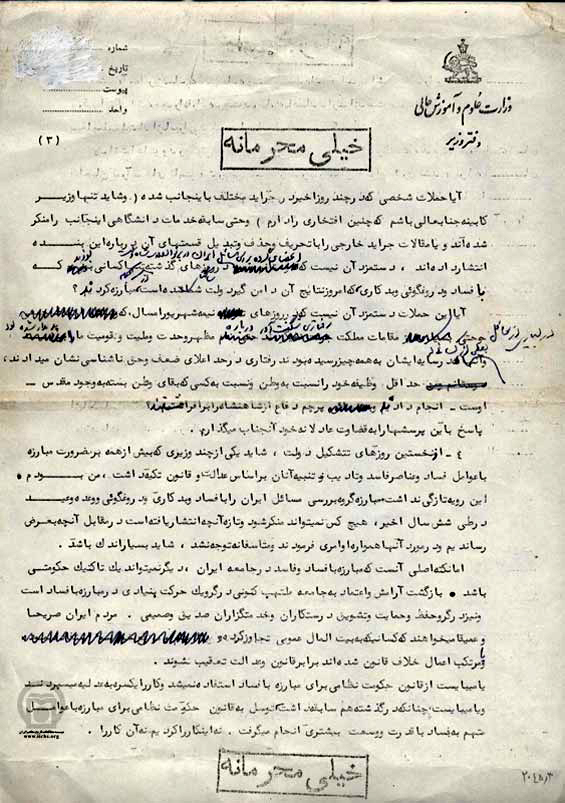 شماره
تاریخ
پیوست
واحد
وزارت علوم و آموزش عالی
دفتر وزیر
(۳)
خیلی محرمانه
آیا حملات شخصی که در چند روز اخیر در جراید مختلف باینجانب شده ( وشاید تنها وزیر
کابینه جنابعالی باشم که چنین افتخاری را دارم ) وحتی سابقه خدمات دانشگاهی اینجانب را منکر
شده‌اند و یا مقالات جراید خارجی را با تحریف وحذف وتبدیل قسمتهای آن درباره این بنده
انتشار داده‌اند ، دستمزد آن نیست که اعضای گروه بررسی مسائل ایران در روزهای گذشته کسانی بودند که
با فساد ودروغگوئی وبدکاری که امروز نتایج آن دامن گیر دولت شده است مبارزه کردند ؟
آیا این حملات دستمزد آن نیست که در روزهای نیمه شهریور امسال، که
حتی مقامات مملکت درباره مظهر وحدت وملیت وقومیت ما
وآنها که در سایه ایشان به همه چیز رسیده بودند رفتاری در حد اعلای ضعف وحق ناشناسی نشان میدادند،
حداقل وظیفه خود را نسبت به وطن ونسبت به کسی که بقای وطن بسته به وجود مقدس
اوست - انجام داد پرچم دفاع از شاهنشاه را برافراشتند
پاسخ باین پرسشها را به قضاوت عادلانه خود آنجناب میگذارم .
٤ - از نخستین روزهای تشکیل دولت ، شاید یکی از چند وزیری که بیش از همه بر ضرورت مبارزه
با عوامل فساد وعناصر فاسد وتادیب وتنبیه آنان بر اساس عدالت و قانون تکیه داشت ، من بودم .
این رویه تازگی نداشت مبارزه گروه بررسی مسائل ایران را با فساد وبدکاری ودروغگوئی ووعده وعید
در طی شش سال اخیر ، هیچ کس نمیتواند منکر شود وتازه آنچه انتشار یافته است در مقابل آنچه بعرض
رساندیم ودر مورد آنها همواره اوامری فرمودند ومتاسفانه توجه نشد ، شاید بسیار اندک باشد .
اما نکته اصلی آنست که مبارزه با فساد وفاسد در جامعه ایران ، دیگر نمیتواند یک تاکتیک حکومتی
باشد . بازگشت آرامش واعتماد به جامعه ملتهب کنونی در گرو یک حرکت بنیادی در مبارزه با فساد است
ونیز در گرو حفظ وحمایت وتشویق درستکاران وخدمتگزاران صدیق وصمیمی . مردم ایران صریحا
وعمیقا میخواهند که کسانیکه به بیت المال عمومی تجاوز کرده
ویا مرتکب اعمال خلاف قانون شده‌اند برابر قانون وعدالت تعقیب شوند .
یا میبایست از قانون حکومت نظامی برای مبارزه با فساد استفاده نمیشد وکار را یکسره به عدلیه میسپردند
ویا میبایست چنانکه در گذشته هم سابقه داشت توسل به قانون حکومت نظامی برای مبارزه با عوامل
متهم به فساد با قدرت ووسعت بیشتری انجام میگرفت . نه اینکار را کردیم نه آن کار را .
خیلی محرمانه
www.iichs.org